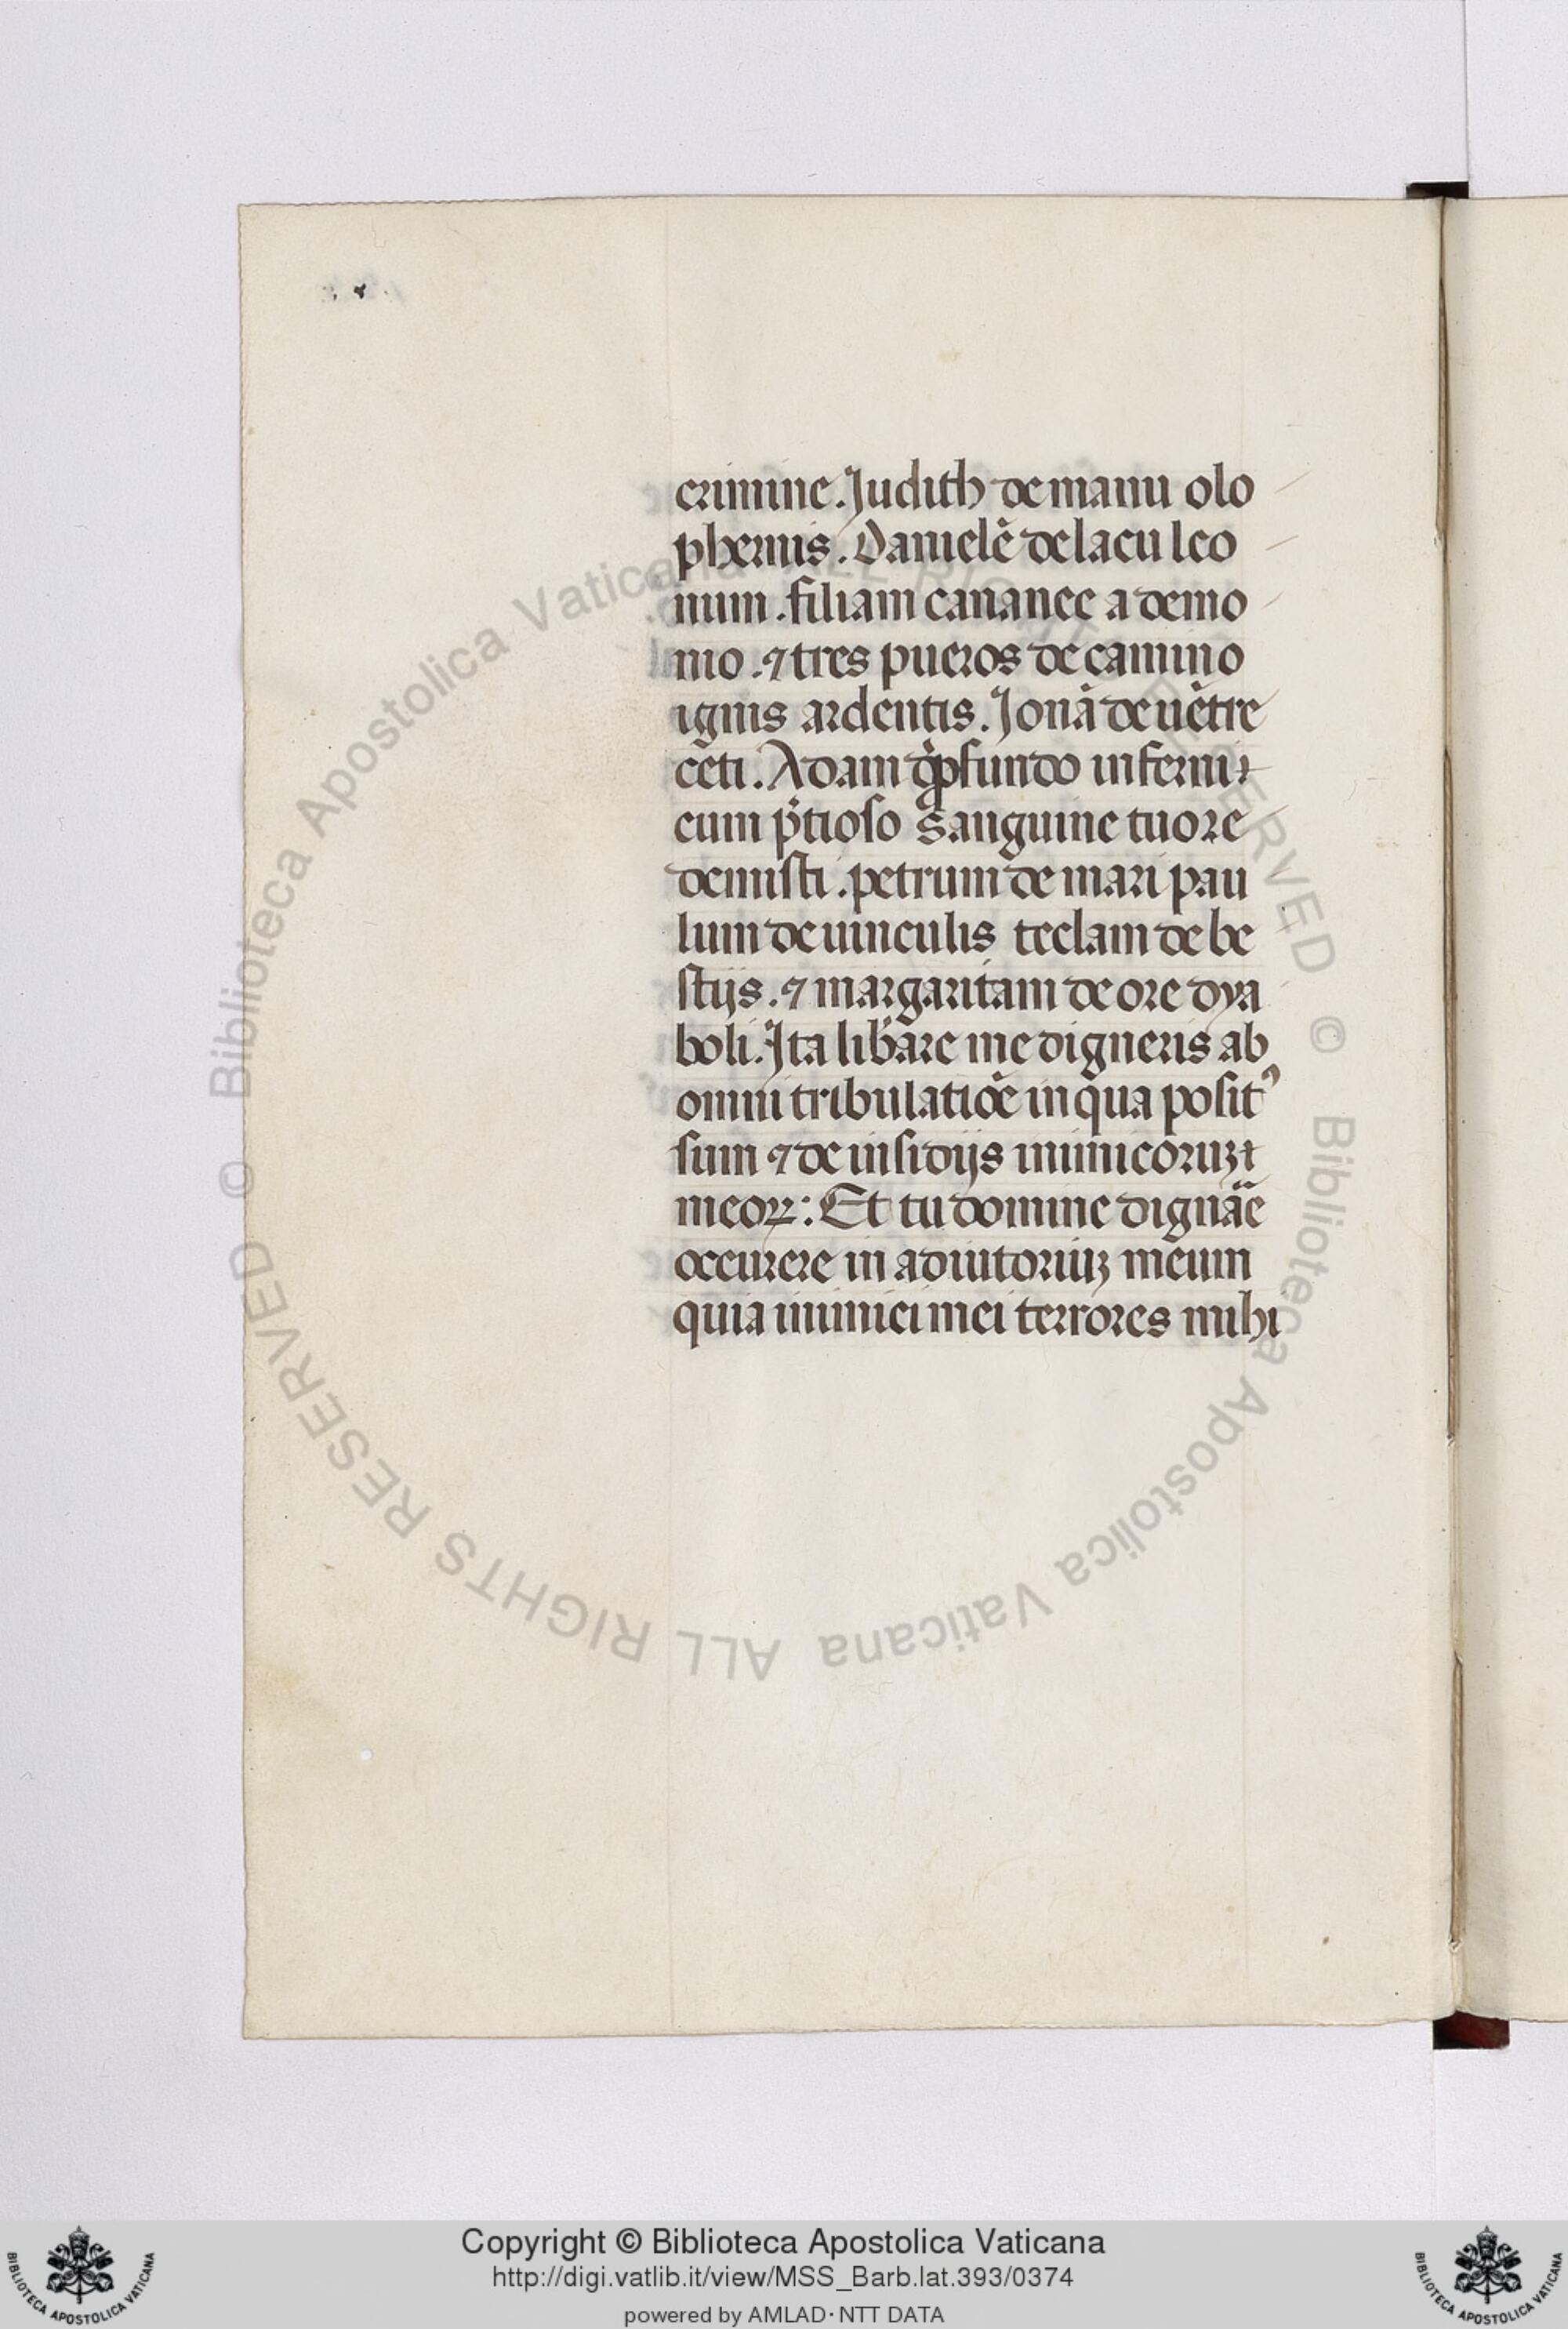 crimine. Judith de manu olo
phernis. Danielē de lacu leo
num. filiam cananee a demo
nio. ⁊ tres pueros de camino
ignis ardentis. Jonā de uētre
ceti. Adam ḏ ꝓfundo inferni
cum p̄tioso sanguine tuo re
demisti. petrum de mari pau
lum de uinculis teclam de be
stijs. ⁊ margaritam de ore dya
boli. Ita lib̄are me digneris ab
omni tribulatiōe in qua positꝰ
sum ⁊ de insidijs inimicoruꝫ
meoꝝ: Et tu domine dignāe
occurere in adiutoriuꝫ meum
quia inimici mei terrores mihi
Copyright © Biblioteca Apostolica Vaticana
http://digi.vatlib.it/view/MSS_Barb.lat.393/0374
powered by AMLAD·NTT DATA
© Biblioteca Apostolica Vaticana ALL RIGHTS RESERVED © Biblioteca Apostolica Vaticana ALL RIGHTS RESERVED
BIBLIOTECA APOSTOLICA VATICANA
BIBLIOTECA APOSTOLICA VATICANA